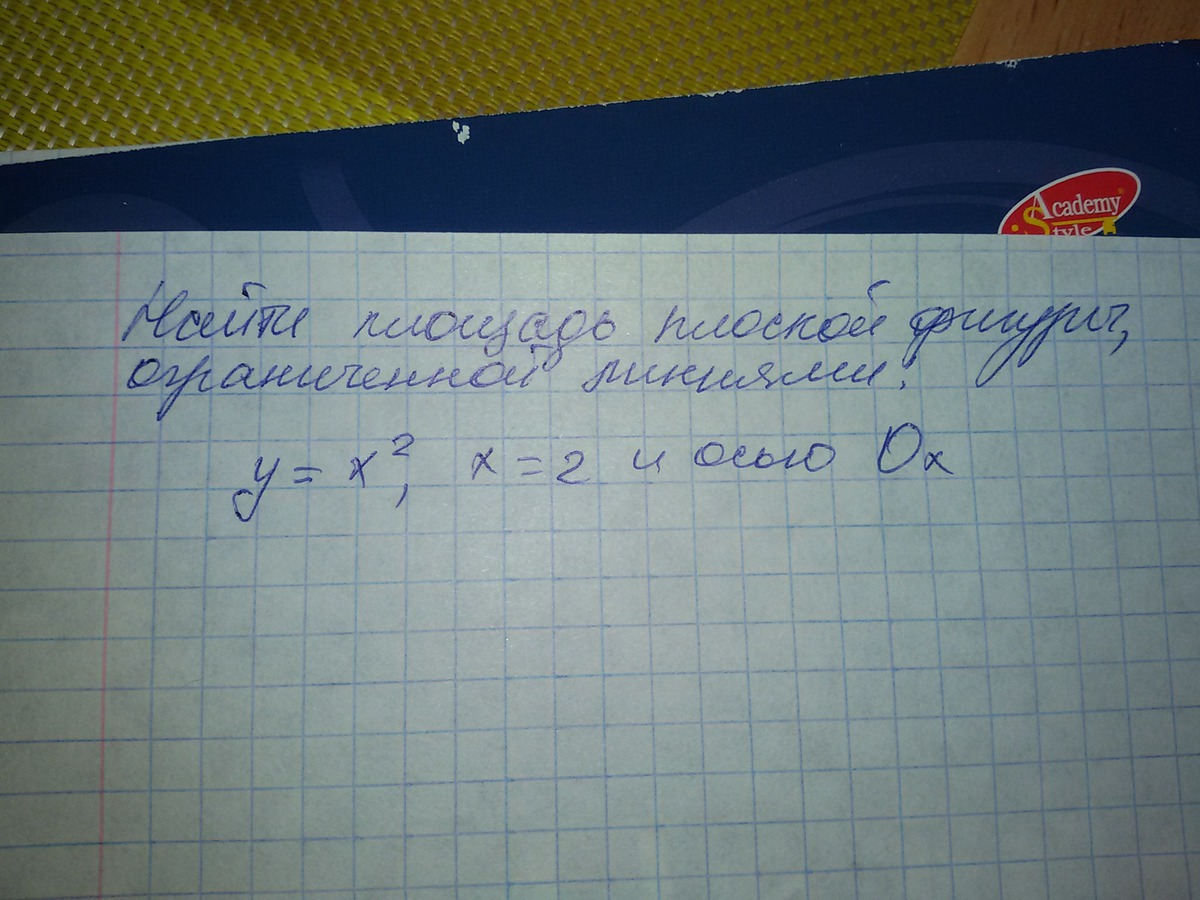 Academy
Style
Найти площадь плоской фигуры,
ограниченной линиями:
y = x², x = 2 и осью Ox